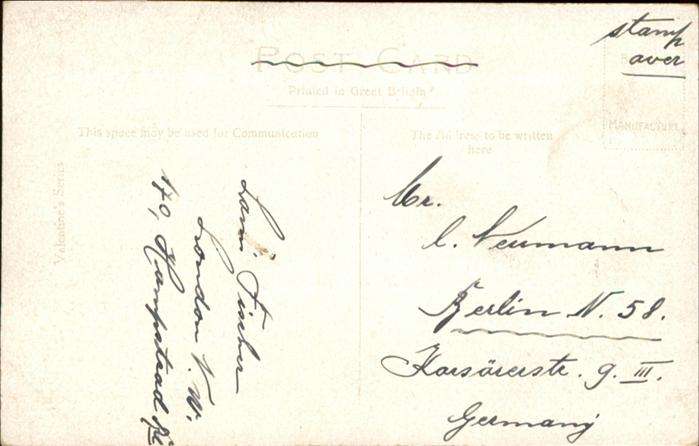 stamp
over
POST CARD
Printed in Great Britain
This space may be used for Communication
The Address to be written
here
MANUFACTURE
Valentine's Series
Mr.
C. Neumann
Berlin N. 58.
Korsörerstr. 9. III.
Germany
Fischer
London N. W.
170, Hampstead